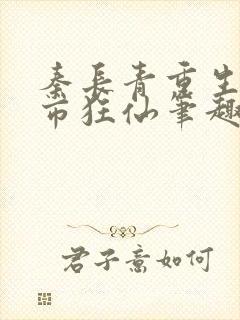 秦长青重生
市狂仙笔趣
君子意如何